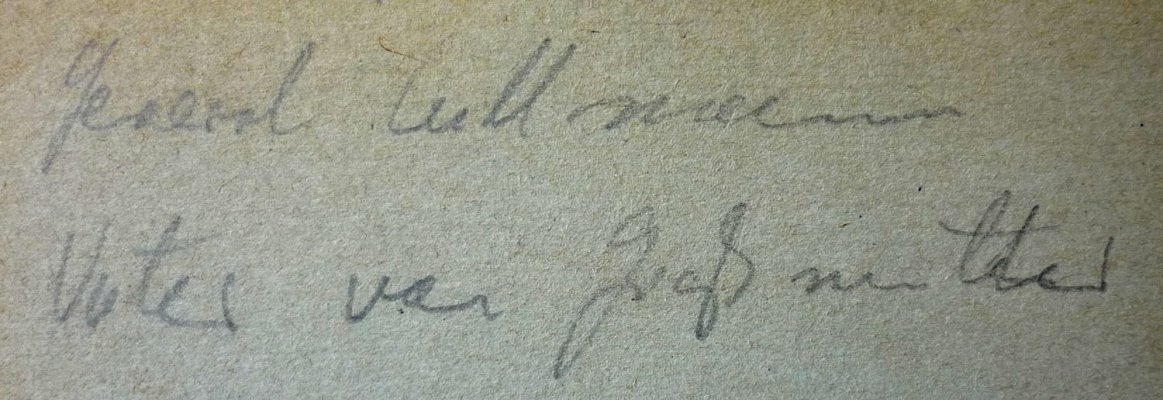 Gerard Tellmann
Vater von Großmutter